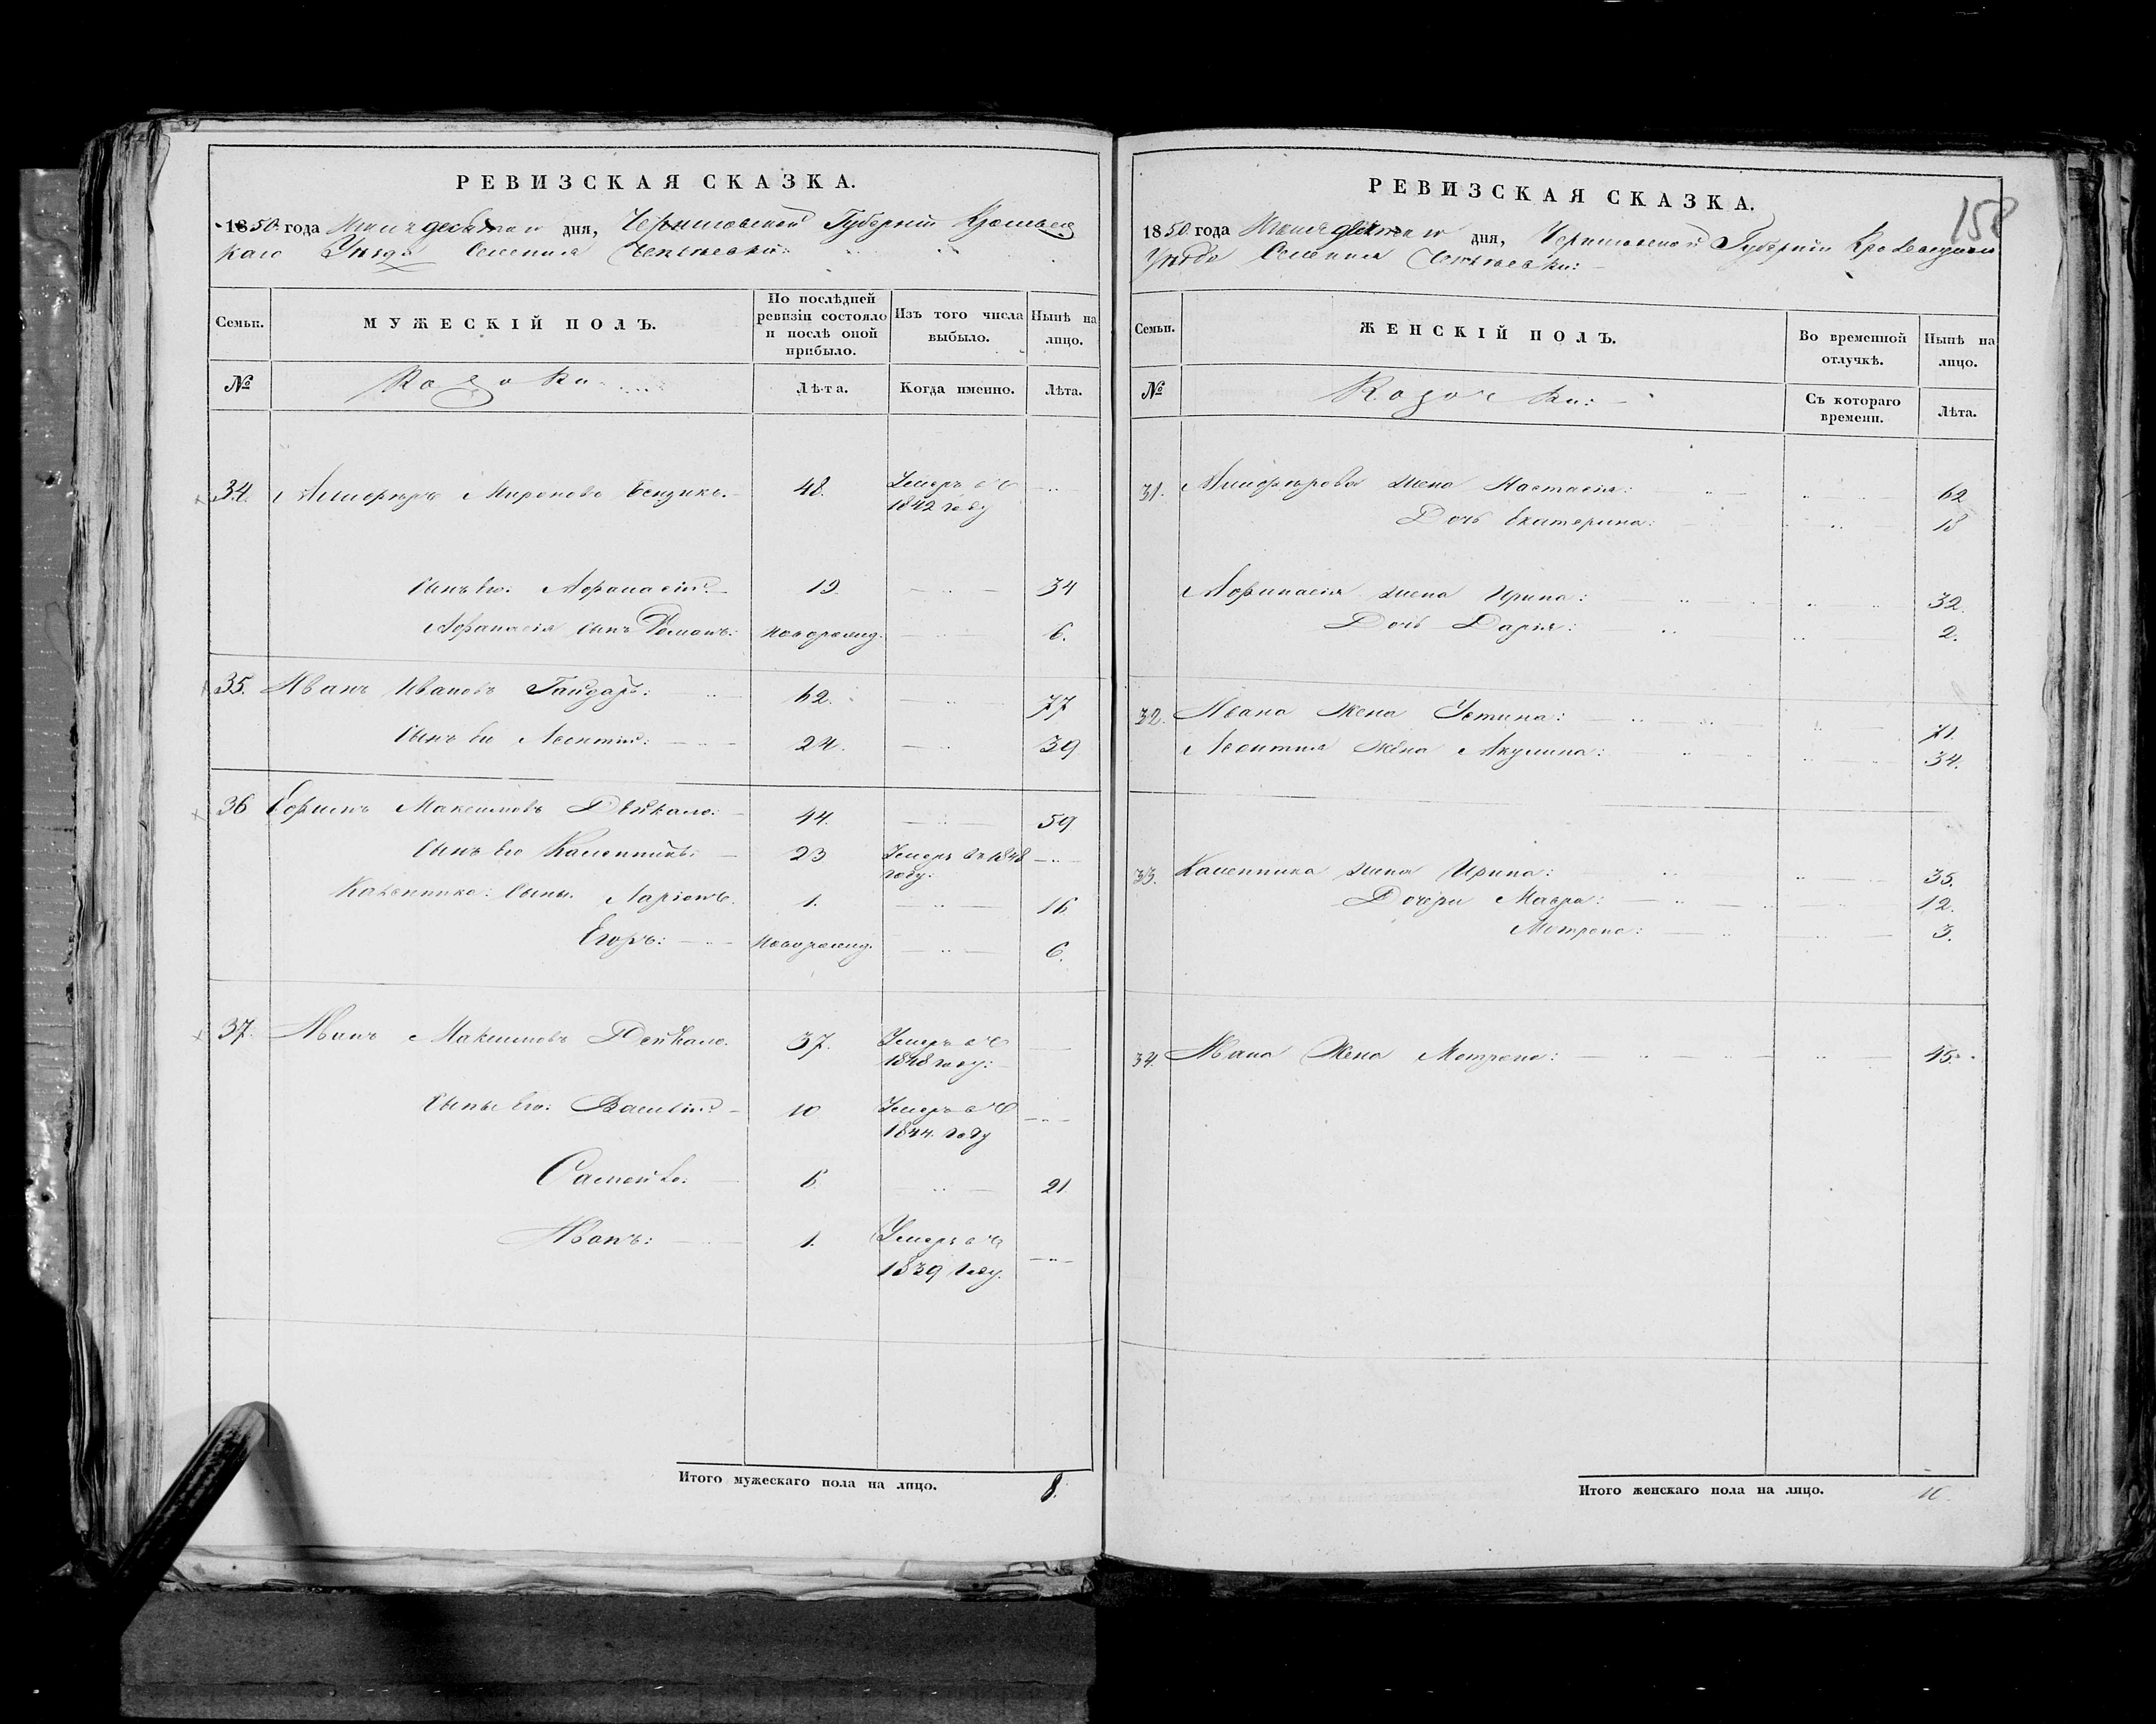 РЕВИЗСКАЯ СКАЗКА.
1850 года дня, Черниговской Губернии
каго Уезда Селения
Семьи.
МУЖЕСКІЙ ПОЛЪ.
По послѣдней ревизіи состояло и послѣ оной прибыло.
Изъ того числа выбыло.
Нынѣ на лицо.
№
Козаки
Лѣта.
Когда именно.
Лѣта.
34. Мироновъ 48. Умеръ въ
1842 году
Сынъ его Афанасій 19. 34
Афанасія сынъ Романъ: новорожд. 6.
35. Иванъ Ивановъ Гайдаръ: 62. 77
Сынъ его Леонтій: 24. 39
36 Ефимъ Максимовъ Дейкало: 44. 59
Сынъ его Каленникъ: 23 Умеръ въ 1848
году:
Каленника: Сыны Ларіонъ. 1. 16
Егоръ: новорожд. 6.
37. Иванъ Максимовъ Дейкало. 37. Умеръ въ
1848 году:
Сыны его: Василій 10 Умеръ въ
1844. году
Самойло: 6 21
Иванъ: 1. Умеръ въ
1839 году.
Итого мужескаго пола на лицо. 8.
158
РЕВИЗСКАЯ СКАЗКА.
1850 года дня, Черниговской Губерніи
Уезда Селения
Семьи.
ЖЕНСКІЙ ПОЛЪ.
Во временной отлучкѣ.
Нынѣ на лицо.
№
Козач ки:
Съ котораго времени.
Лѣта.
31. жена Настасія: 62
Дочь Екатерина: 18
Афанасія жена Ирина: 32.
Дочь Дарія: 2.
32. Ивана Жена Устина: 71.
Леонтия Жена Акулина: 34.
33. Каленника жена Ирина: 35.
Дочери Мавра: 12.
Мотрона: 3.
34. Ивана Жена Мотрона: 45.
Итого женскаго пола на лицо. 10.